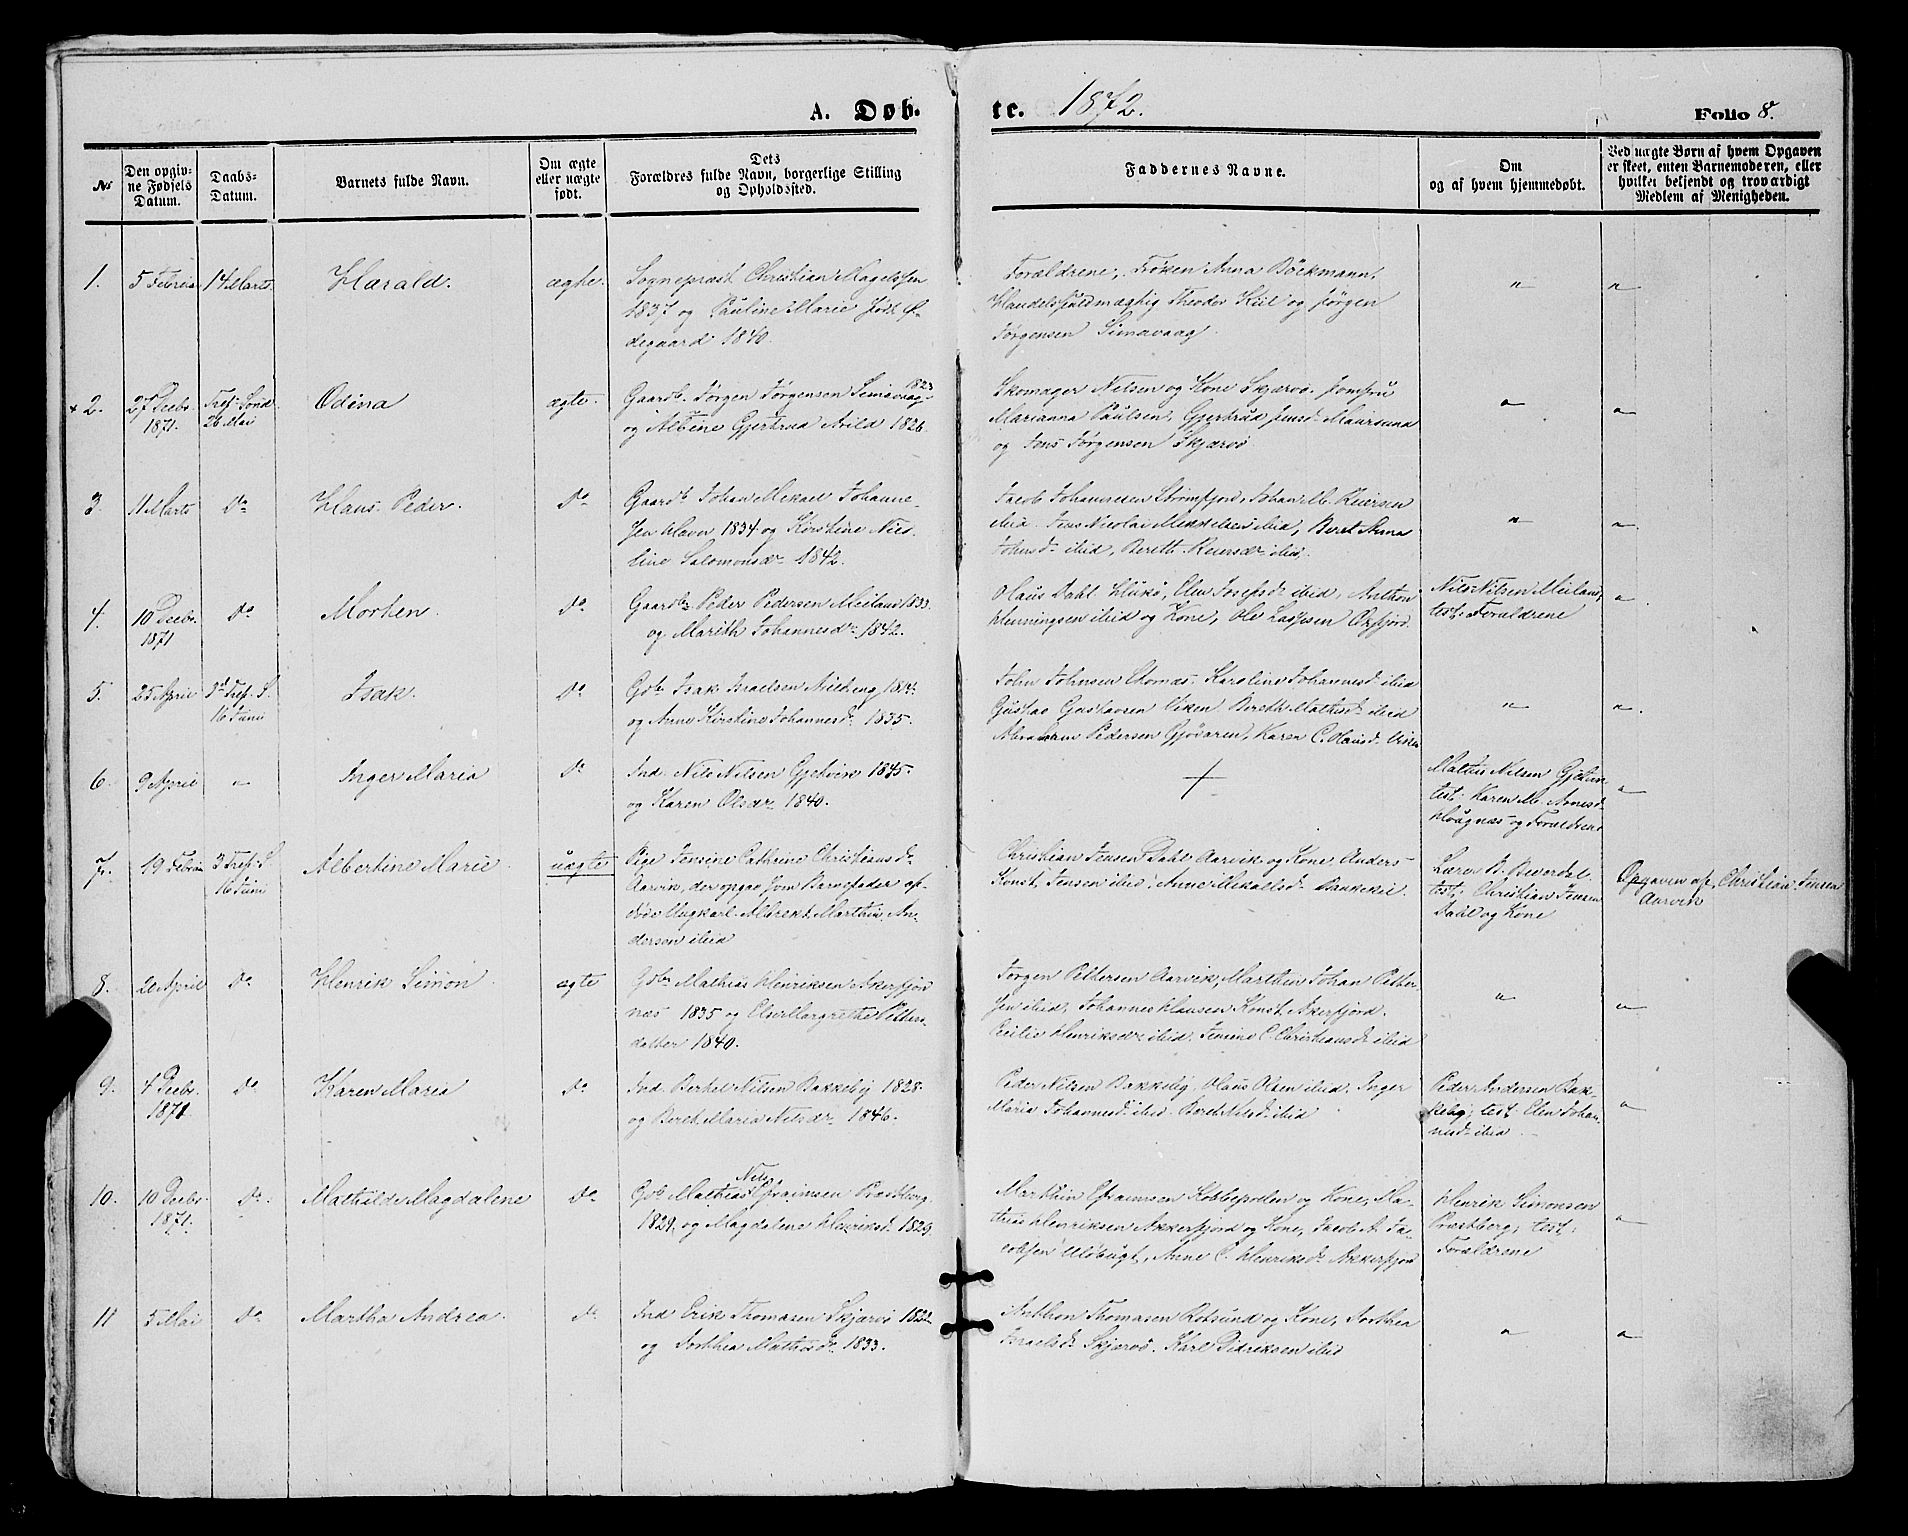 A. Døb-
te. 1872.
Folio 8.
No
Den opgiv-
ne Fødsels
Datum.
Daabs-
Datum.
Barnets fulde Navn.
Om ægte
eller uægte
født.
Dets
Forældres fulde Navn, borgerlige Stilling
og Opholdssted.
Faddernes Navne.
Om
og af hvem hjemmedøbt.
Ved uægte Børn af hvem Opgaven
er skeet, enten Barnemoderen, eller
hvilket bekjendt og troværdigt
Medlem af Menigheden.
1. 5 Februar 14 Marts. Harald. ægte.
Sognepræst Christian Magelssen
1837 og Pauline Marie født Ø-
degaard 1840.
Forældrene, Frøken Anna Böckmann,
Handelsfuldmægtig Theodor Kiil og Jørgen
Jørgensen Simavaag
" "
+ 2. 27 Decbr. 1871. Tref. Sønd. 26 Mai Odina ægte.
Gaardb. Jørgen Jørgensen Simavaag 1823
og Albine Gjertrud Arild 1826.
Skomager Nilsen og Kone Skjærvö. Jomfru
Marianna Paulsen, Gjertrud Jensd. Maursund
og Jens Jørgensen Skjærvö
" "
3. 11 Marts Do Hans Peder. Do
Gaardb. Johan Mikael Johanne-
sen Havn 1834 og Kirstine Nico-
line Salomonsdr. 1842.
Jacob Johannesen Strömfjord, Johan M. Reiersen
ibid. Jens Nicolai Mikkelsen ibid, Beret Anna
Johnsd. ibid, Berith Reiersdr. ibid.
" "
4. 10 Decbr. 1871 Do Morten. Do
Gaardbr. Peder Pedersen Meiland 1833.
og Marith Johannesdr. 1842.
Olaus Dahl Hukö, Elen Josefsd. ibid, Anthon
Henningsen ibid og Kone, Ole Larssen Oxfjord.
Nils Nilsen Meiland;
test: Forældrene
"
5. 25 April 3d Tref. S. 16 Juni Isak. Do
Gbr. Isak Israelsen
og Anne Kirstine Johannesd. 1835.
John Johnsen Stornæs. Karoline Johannesd. ibid
Gustav Gustavsen Viken. Bereth Mathisd. ibid
Abraham Pedersen Gjøvaren, Karen C. Olausd. Viken
" "
6. 9 April " Inger Maria Do
Ind. Nils Nilsen Gjetvik 1845.
og Karen Olsdr. 1840.
+
Mathis Nilsen
test: Karen M. Arnesd.
Haugnæs og Forældrene
"
7. 19 Februar 3 Tref. S. 16 Juni Albertine Marie uægte
Pige Jensine Cathrine Christiansdr.
Aarvik, der opgav som Barnefader af-
døde Ungkarl Albrekt Marthin An-
dersen ibid
Christian Jensen Dahl Aarvik og Kone, Anders
Konst. Jensen ibid, Anne Mikalsd. Bankekil.
Lærer B. Beverdal
test: Christian Jensen
Dahl og Kone
Opgaven af Christian Jensen
Aarvik
8. 2 April Do Henrik Simon ægte
Gdbr. Mathias Henriksen Akerfjord
næs 1835 og Elen Margrethe Petters-
datter 1840.
Jørgen Pettersen Aarvik, Marthin Johan Petter-
sen ibid, Johannes Hansen Konst. Akerfjord.
Cecilie Henriksdr. ibid. Jensine C. Christiansd. ibid
" "
9. 4 Decbr. 1871 Do Karen Maria Do
Ind. Berhel Nilsen Bakkeby 1828.
og Bereth Maria Nilsdr. 1846.
Peder Nilsen Bakkeby, Olaus Olsen ibid. Inger
Maria Johannesd. ibid. Bereth Nilsd. ibid
Peder Andersen Bak-
keby; test: Elen Johan-
nesd. ibid
"
10. 10 Decbr. 1871. Do Mathilde Magdalene Do
Gdb. Mathias Nils Efraimsen Præstberg
1829. og Magdalene Henriksd. 1829.
Marthin Efraimsen Kobbepollen og Kone, Ma-
thias Henriksen Akkerfjord og Kone, Jacob A. Ja-
cobsen Uløbugt, Anne C. Henriksdr. Akkerfjord
Henrik Simonsen
Præstberg; test:
Forældrene
"
11 5 Mai Do Martha Andrea. Do
Ind. Erik Thomasen Skjærvö 1822.
og Dorthea Mathisdr. 1833.
Anthon Thomasen Rotsund og Kone, Dorthea
Israelsd. Skjærvö. Karl Didriksen ibid
" "